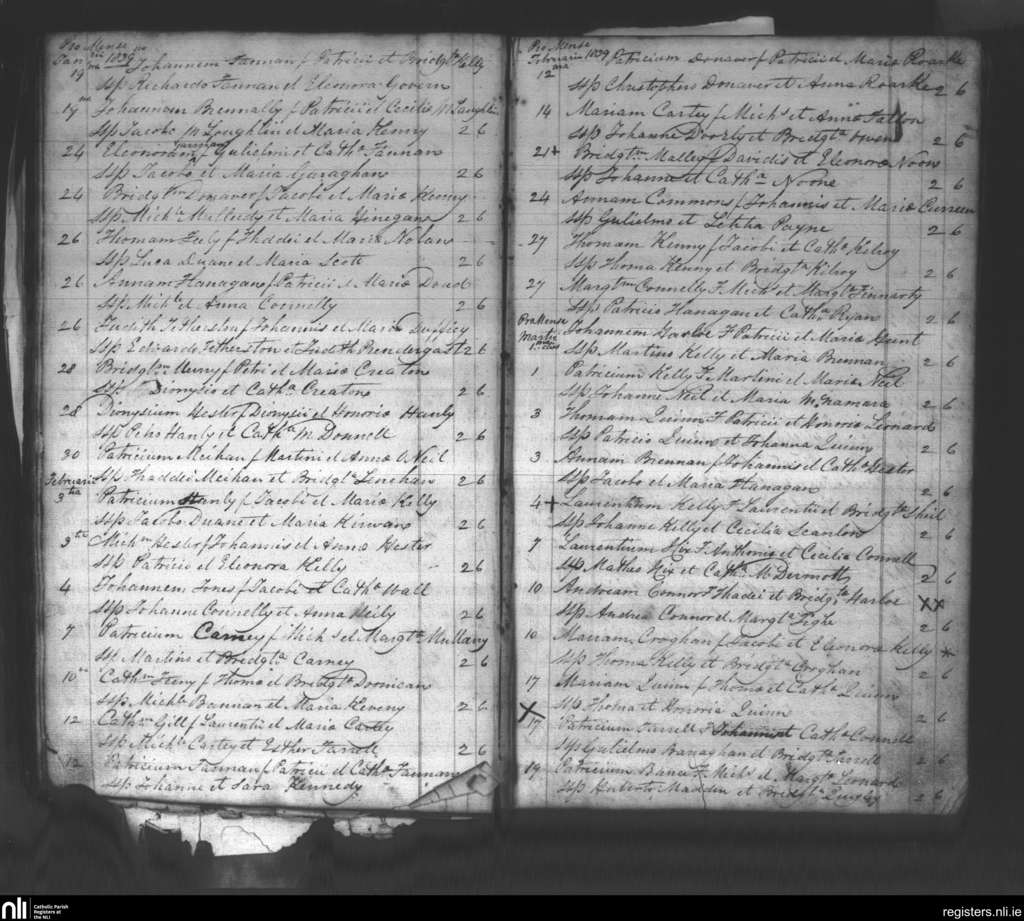 Pro Mense
Januarii 1839
19 Johannem Fannan f Patricii et Bridgta Kelly
ssp Richardo Fannan et Eleonora Govern
19 Johannem Brennally f Patricii et Cecilia McLaughlin
ssp Jacobo McLoughlin et Maria Kenny 2 6
24 Eleonoram f Gulielmi et Catha Fannan
ssp Jacobo et Maria Garaghan 2 6
24 Bridgtam Donaver f Jacobi et Maria Kenny
ssp Michl Mulledy et Maria Hinegan 2 6
26 Thomam Feely f Thadei et Maria Nolan
ssp Luca Duane et Maria Scott 2 6
26 Annam Hanagan f Patricii et Maria Dowd
ssp Michle et Anna Connelly 2 6
26 Judith Fetherston f Johannis et Maria Duffiey
ssp Edwardo Fetherston et Judith Prendergast 2 6
28 Bridgtam f Petri et Maria Creaton
ssp Dionysio et Catha Creaton 2 6
28 Dionysium Hester f Dionysii et Honoria Hanly
ssp Petro Hanly et Catha McDonnell 2 6
30 Patricium Meihan f Martini et Anna O Neil
ssp Thaddei Meihan et Bridgta Linehan 2 6
Februarii
3tia Patricium Hanly f Jacobi et Maria Kelly
ssp Jacobo Duane et Maria Kirwan 2 6
3tia Michm Hester f Johannis et Anna Hester
ssp Patricio et Eleonora Kelly 2 6
4 Johannem Jones f Jacobi et Catha Wall
ssp Johanne Connelly et Anna Reily 2 6
7 Patricium Carney f Michs et Margta Mullany
ssp Martino et Bridgta Carney 2 6
10 Catham Feeny f Thoma et Bridgta Dornican
ssp Michle Bannan et Maria Keveny 2 6
12 Catham Gill f Laurentii et Maria Cartey
ssp Michle Cartey et Esther Farrell 2 6
12 Patricium Fannan f Patricii et Catha Fannan
ssp Johanne et Sara Kennedy
Pro Mense
Februarii 1839
12 Patricium Donaver f Patricii et Maria Roarke
ssp Christophero Donaver et Anna Roarke 2 6
14 Mariam Cartey f Michs et Anna Fallon
ssp Johanne Doorly et Bridgta Owen 2 6
21 + Bridgtam Malley f Davidis et Eleonora Noon
ssp Johanne et Catha Noone 2 6
24 Annam Commons f Johannis et Maria Curreen
ssp Gulielmo et Letitia Payne 2 6
27 Thomam Kenny f Jacobi et Catha Kilroy
ssp Thoma Kenny et Bridgta Kilroy 2 6
27 Margtam Connelly F Michs et Margta Finnarty
ssp Patricio Hanagan et Catha Ryan 2 6
Pro Mense
Martii
Johannem Harloe F Patricii et Maria Hunt
ssp Martino Kelly et Maria Brennan 2 6
1 Patricium Kelly F Martini et Maria Neil
ssp Johanne Neil et Maria McNamara 2 6
3 Thomam Quinn F Patricii et Honoria Leonard
ssp Patricio Quinn et Johanna Quinn 2 6
3 Annam Brennan f Johannis et Catha Hester
ssp Jacobo et Maria Hanagan 2 6
4 + Laurentium Kelly F Laurentii et Bridgta Shiel
ssp Johanne Kelly et Cecilia Scanlon 2 6
7 Laurentium Hix F Anthonii et Cecilia Connell
ssp Matheo Hix et Catha McDermott 2 6
10 Andream Connor F Thadei et Bridgta Harloe XX
ssp Andrea Connor et Margta Tighe 2 6
10 Mariam Croghan f Jacobi et Eleonora Kelly
ssp Thoma Kelly et Bridgta Croghan 2 6
17 Mariam Quinn f Thoma et Catha Quinn
ssp Thoma et Honoria Quinn 2 6
X
17 Patricium Farrell F Johannis et Catha Connell
ssp Gulielmo Banaghan et Bridgta Farrell 2 6
19 Patricium Bane F Michs et Margta Leonard
ssp Huberto Madden et Bridgta 2 6
nli Catholic Parish
Registers at
the NLI
registers.nli.ie